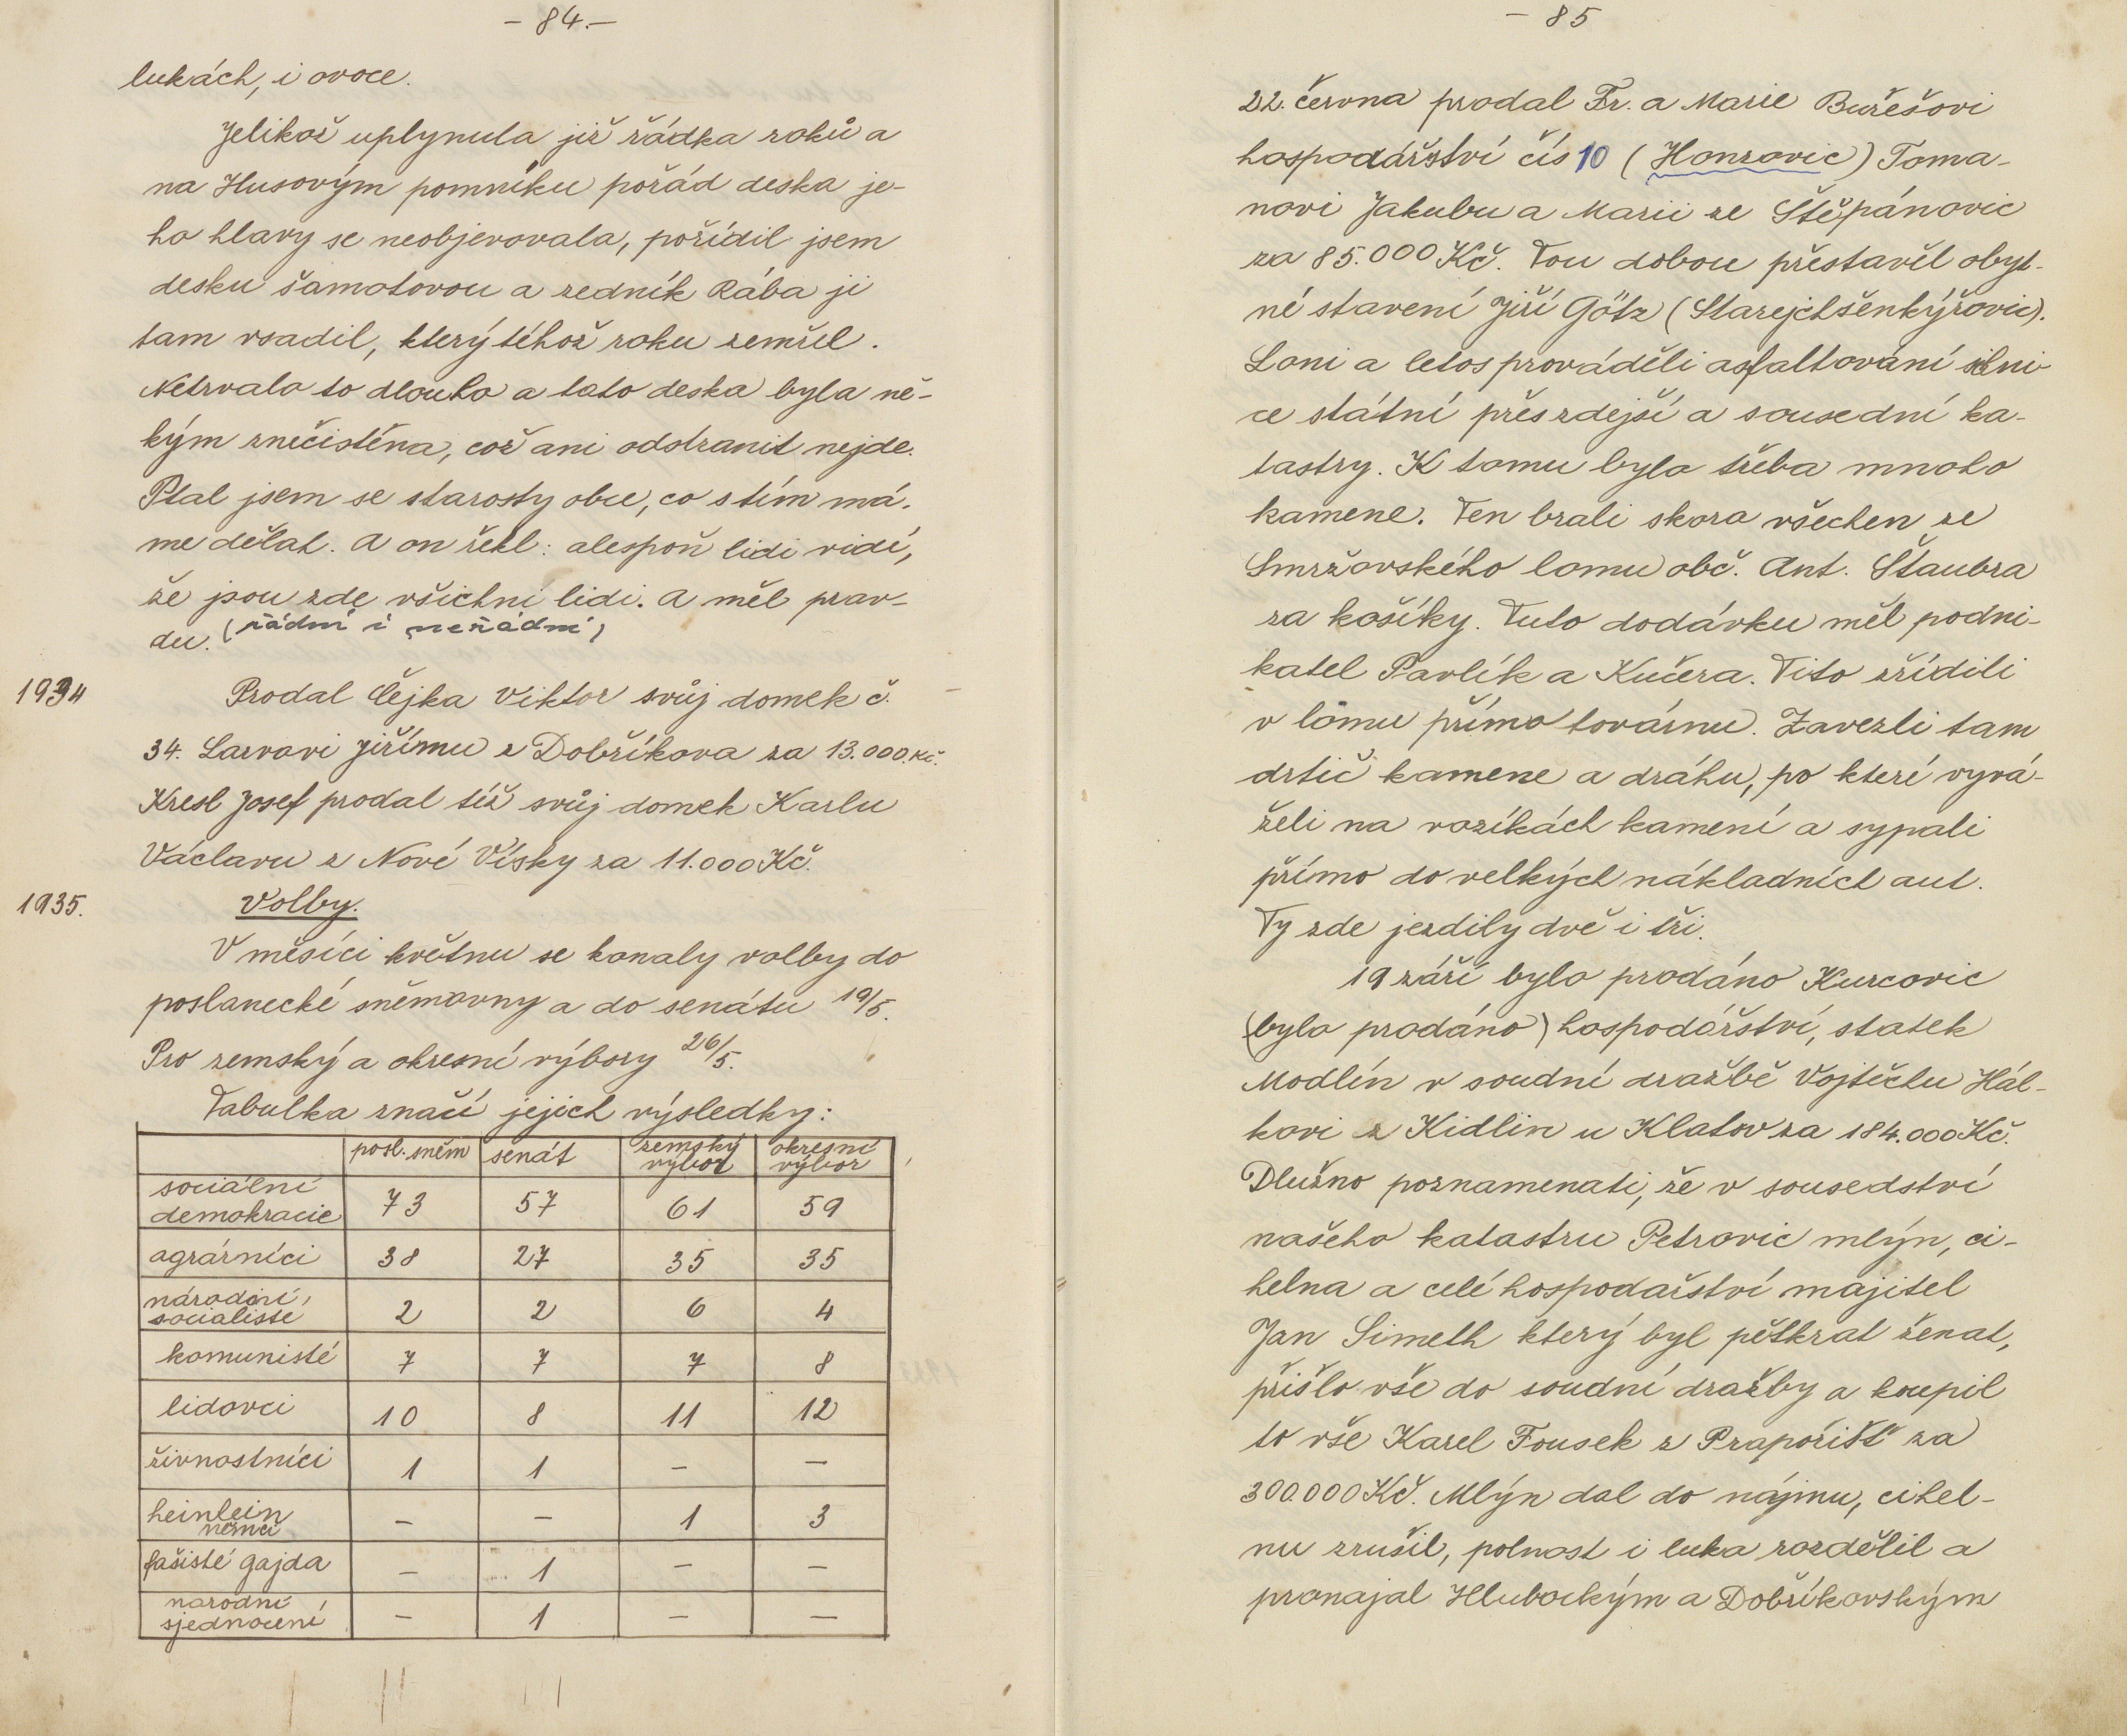 - 84. -
lukách, i ovoce.
Jelikož uplynula již řádka roků a
na Husovým pomníku pořád deska je-
ho hlavy se neobjevovala, pořídil jsem
desku šamotovou a zedník Rába ji
tam vsadil, který téhož roku zemřel.
Netrvalo to dlouho a tato deska byla ně-
kým znečistěna, což ani odstranit nejde.
Ptal jsem se starosty obce, co s tím má-
me dělat. A on řekl: alespoň lidi vidí,
že jsou zde všichni lidi. A měl prav-
du. (řádní i neřádní)
1934 Prodal Čejka Viktor svůj domek č.
34. Larvovi Jiřímu z Dobříkova za 13.000 Kč.
Kresl Josef prodal též svůj domek Karlu
Václavu z Nové Vísky za 11.000 Kč.
1935. Volby.
V měsíci květnu se konaly volby do
poslanecké sněmovny a do senátu 19/5.
Pro zemský a okresní výbory 26/5.
Tabulka značí jejich výsledky:
posl. sněm senát zemský výbor okresní výbor
sociální demokracie 73 57 61 59
agrárníci 38 27 35 35
národní socialisté 2 2 6 4
komunisté 7 7 7 8
lidovci 10 8 11 12
živnostníci 1 1 — —
heinlein němci — — 1 3
fašisté gajda — 1 — —
národní sjednocení — 1 — —
- 85
22. června prodal Fr. a Marie Burešovi
hospodářství čís 10 (Honzovic) Toma-
novi Jakubu a Marii ze Štěpánovic
za 85.000 Kč. Tou dobou přestavěl obyt-
né stavení Jiří Götz (Starejchšenkýřovic).
Loni a letos prováděli asfaltování silni-
ce státní přes zdejší a sousední ka-
tastry. K tomu bylo třeba mnoho
kamene. Ten brali skoro všechen ze
Smržovského lomu obč. Ant. Štaubra
za košíky. Tuto dodávku měl podni-
katel Pavlík a Kučera. Tito zřídili
v lomu přímo továrnu. Zavezli tam
drtič kamene a dráhu, po které vyvá-
želi na vozíkách kamení a sypali
přímo do velkých nákladních aut.
Ty zde jezdily dvě i tři.
19 září bylo prodáno Kurcovic
(bylo prodáno) hospodářství, statek
Modlín v soudní dražbě Vojtěchu Hál-
kovi z Kidlin u Klatov za 184.000 Kč.
Dlužno poznamenati, že v sousedství
našeho katastru Petrovic mlýn, ci-
helna a celé hospodařství majitel
Jan Simeth který byl pětkrat ženat,
přišlo vše do soudní dražby a koupil
to vše Karel Fousek z Prapořišť za
300.000 Kč. Mlýn dal do nájmu, cihel-
nu zrušil, polnost i luka rozdělil a
pronajal Hlubockým a Dobříkovským